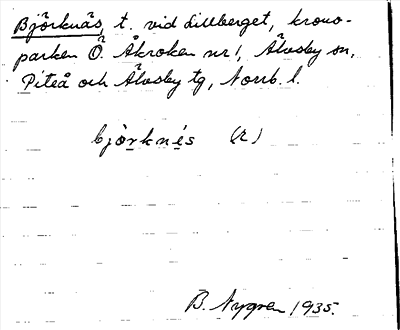 Björknäs, t. vid Lillberget, krono-
parken Ö. Åkroken nr 1, Älvsby sn,
Piteå och Älvsby tg, Norrb. l.
bjò̱rknés (2)
B. Nygren 1935.